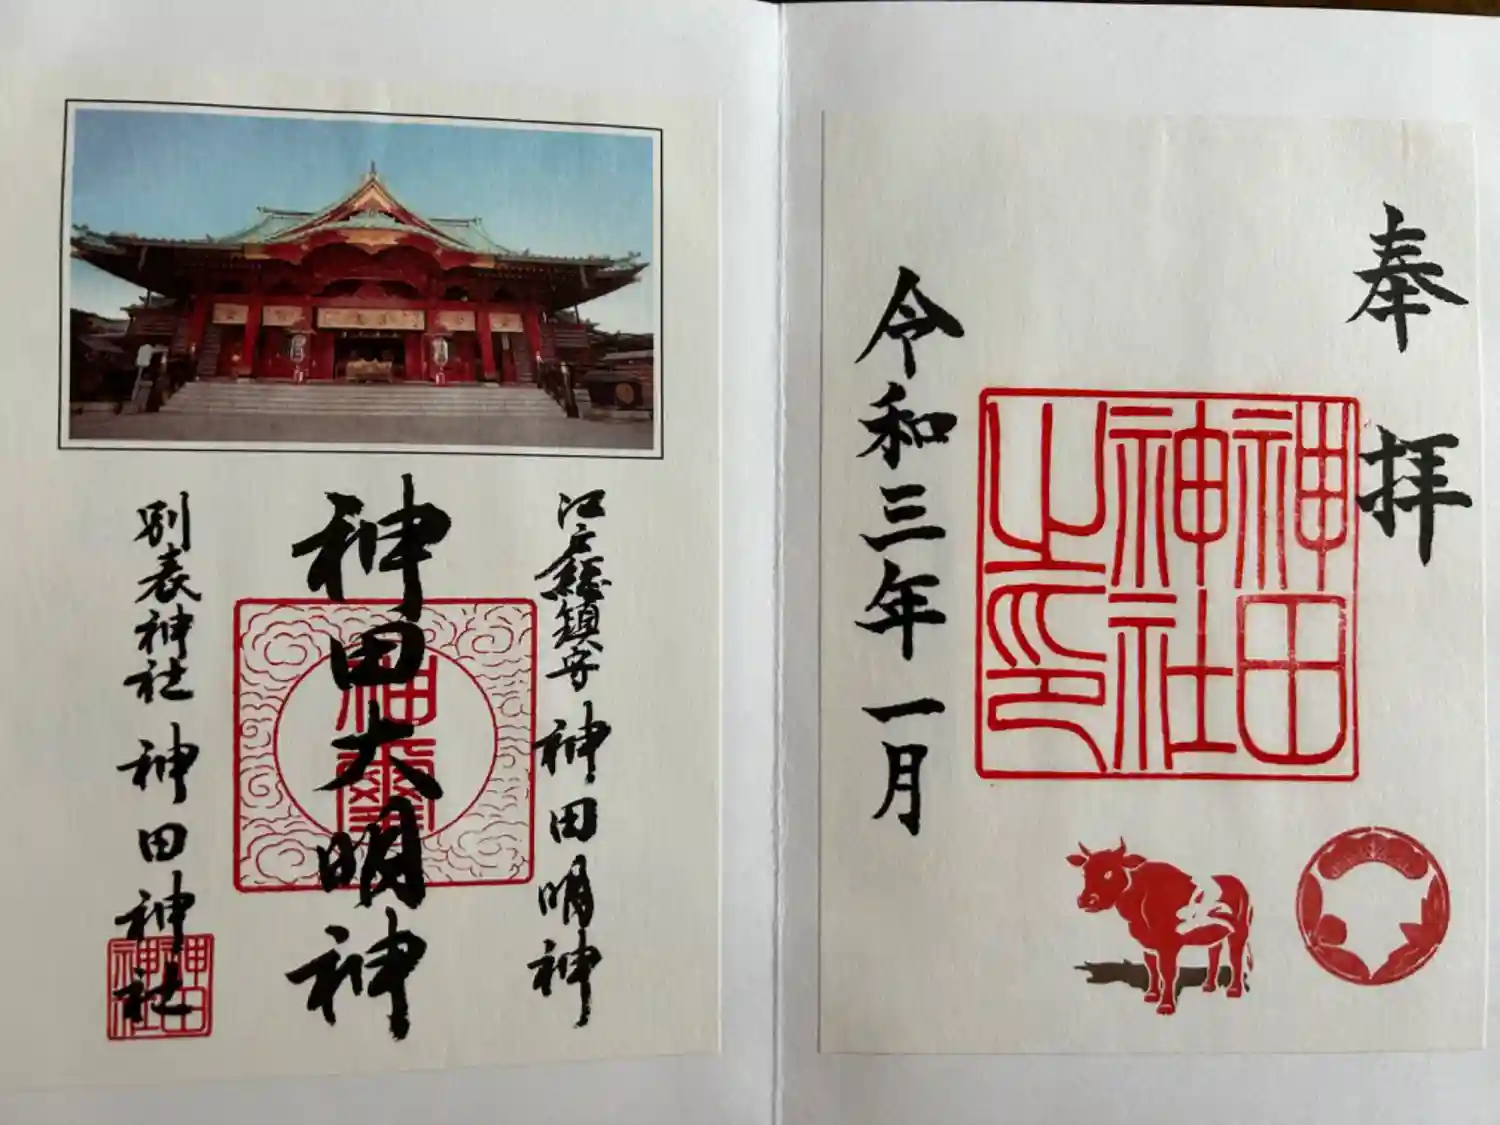 奉拝
神田
神社
之印
令和三年一月
江戸総鎮守 神田明神
神田大明神
神璽
別表神社 神田神社
神田
神社